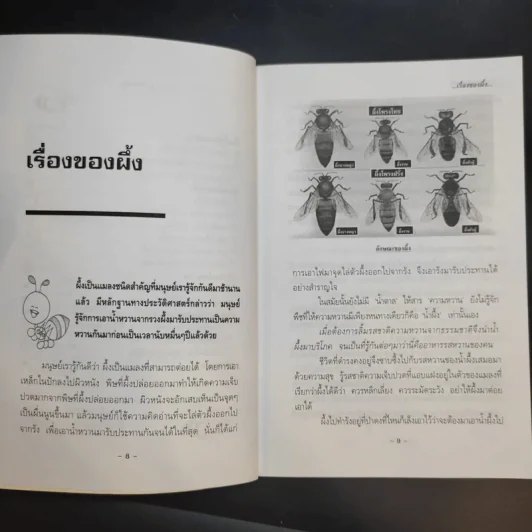 เรื่องของผึ้ง
ผึ้งเป็นแมลงชนิดสำคัญที่มนุษย์เรารู้จักกันดีมาช้านาน
แล้ว มีหลักฐานทางประวัติศาสตร์กล่าวว่า มนุษย์
รู้จักการเอาน้ำหวานจากรวงผึ้งมารับประทานเป็นความ
หวานกันมาก่อนเป็นเวลานับหมื่นๆปีแล้วด้วย
มนุษย์เรารู้กันดีว่า ผึ้งเป็นแมลงที่สามารถต่อยได้ โดยการเอา
เหล็กในปักลงไปผิวหนัง พิษที่ผึ้งปล่อยออกมาทำให้เกิดความเจ็บ
ปวดมากจากพิษที่ผึ้งปล่อยออกมา ผิวหนังจะอักเสบเห็นเป็นจุดๆ
เป็นผื่นนูนขึ้นมา แล้วมนุษย์ก็ใช้ความคิดอ่านที่จะไล่ตัวผึ้งออกไป
จากรัง เพื่อเอาน้ำหวานมารับประทานกันจนได้ในที่สุด นั่นก็ได้แก่
- 8 -
เรื่องของผึ้ง
ผึ้งโพรงไทย
ผึ้งนางพญา ผึ้งงาน ผึ้งตัวผู้
ผึ้งโพรงฝรั่ง
ผึ้งนางพญา ผึ้งงาน ผึ้งตัวผู้
ลักษณะของผึ้ง
การเอาไฟมาจุดไล่ตัวผึ้งออกไปจากรัง จึงเอารังมารับประทานได้
อย่างสำราญใจ
ในสมัยนั้นยังไม่มี น้ำตาล ให้สาร ความหวาน ยังไม่รู้จัก
พืชที่ให้ความหวานมีเพียงหนทางเดียวก็คือ น้ำผึ้ง เท่านั้นเอง
เมื่อต้องการลิ้มรสชาติความหวานจากธรรมชาติจึงนำน้ำ
ผึ้งมาบริโภค จนเป็นที่รู้กันต่อๆมาว่านี่คืออาหารรสหวานของคน
ชีวิตที่ดำรงคงอยู่จึงซาบซึ้งไปกับรสหวานของน้ำผึ้งเสมอมา
ด้วยความสุข รู้รสชาติความเจ็บปวดที่แอบแฝงอยู่ในตัวของแมลงที่
เรียกว่าผึ้งได้ดีว่า ควรหลีกเลี่ยง ควรระมัดระวัง อย่าให้ผึ้งมาต่อย
เอาได้
ผึ้งไปทำรังอยู่ที่ป่าดงที่ไหนก็เล็งเอาไว้ว่าจะต้องมาเอาน้ำผึ้งไป
- 9 -